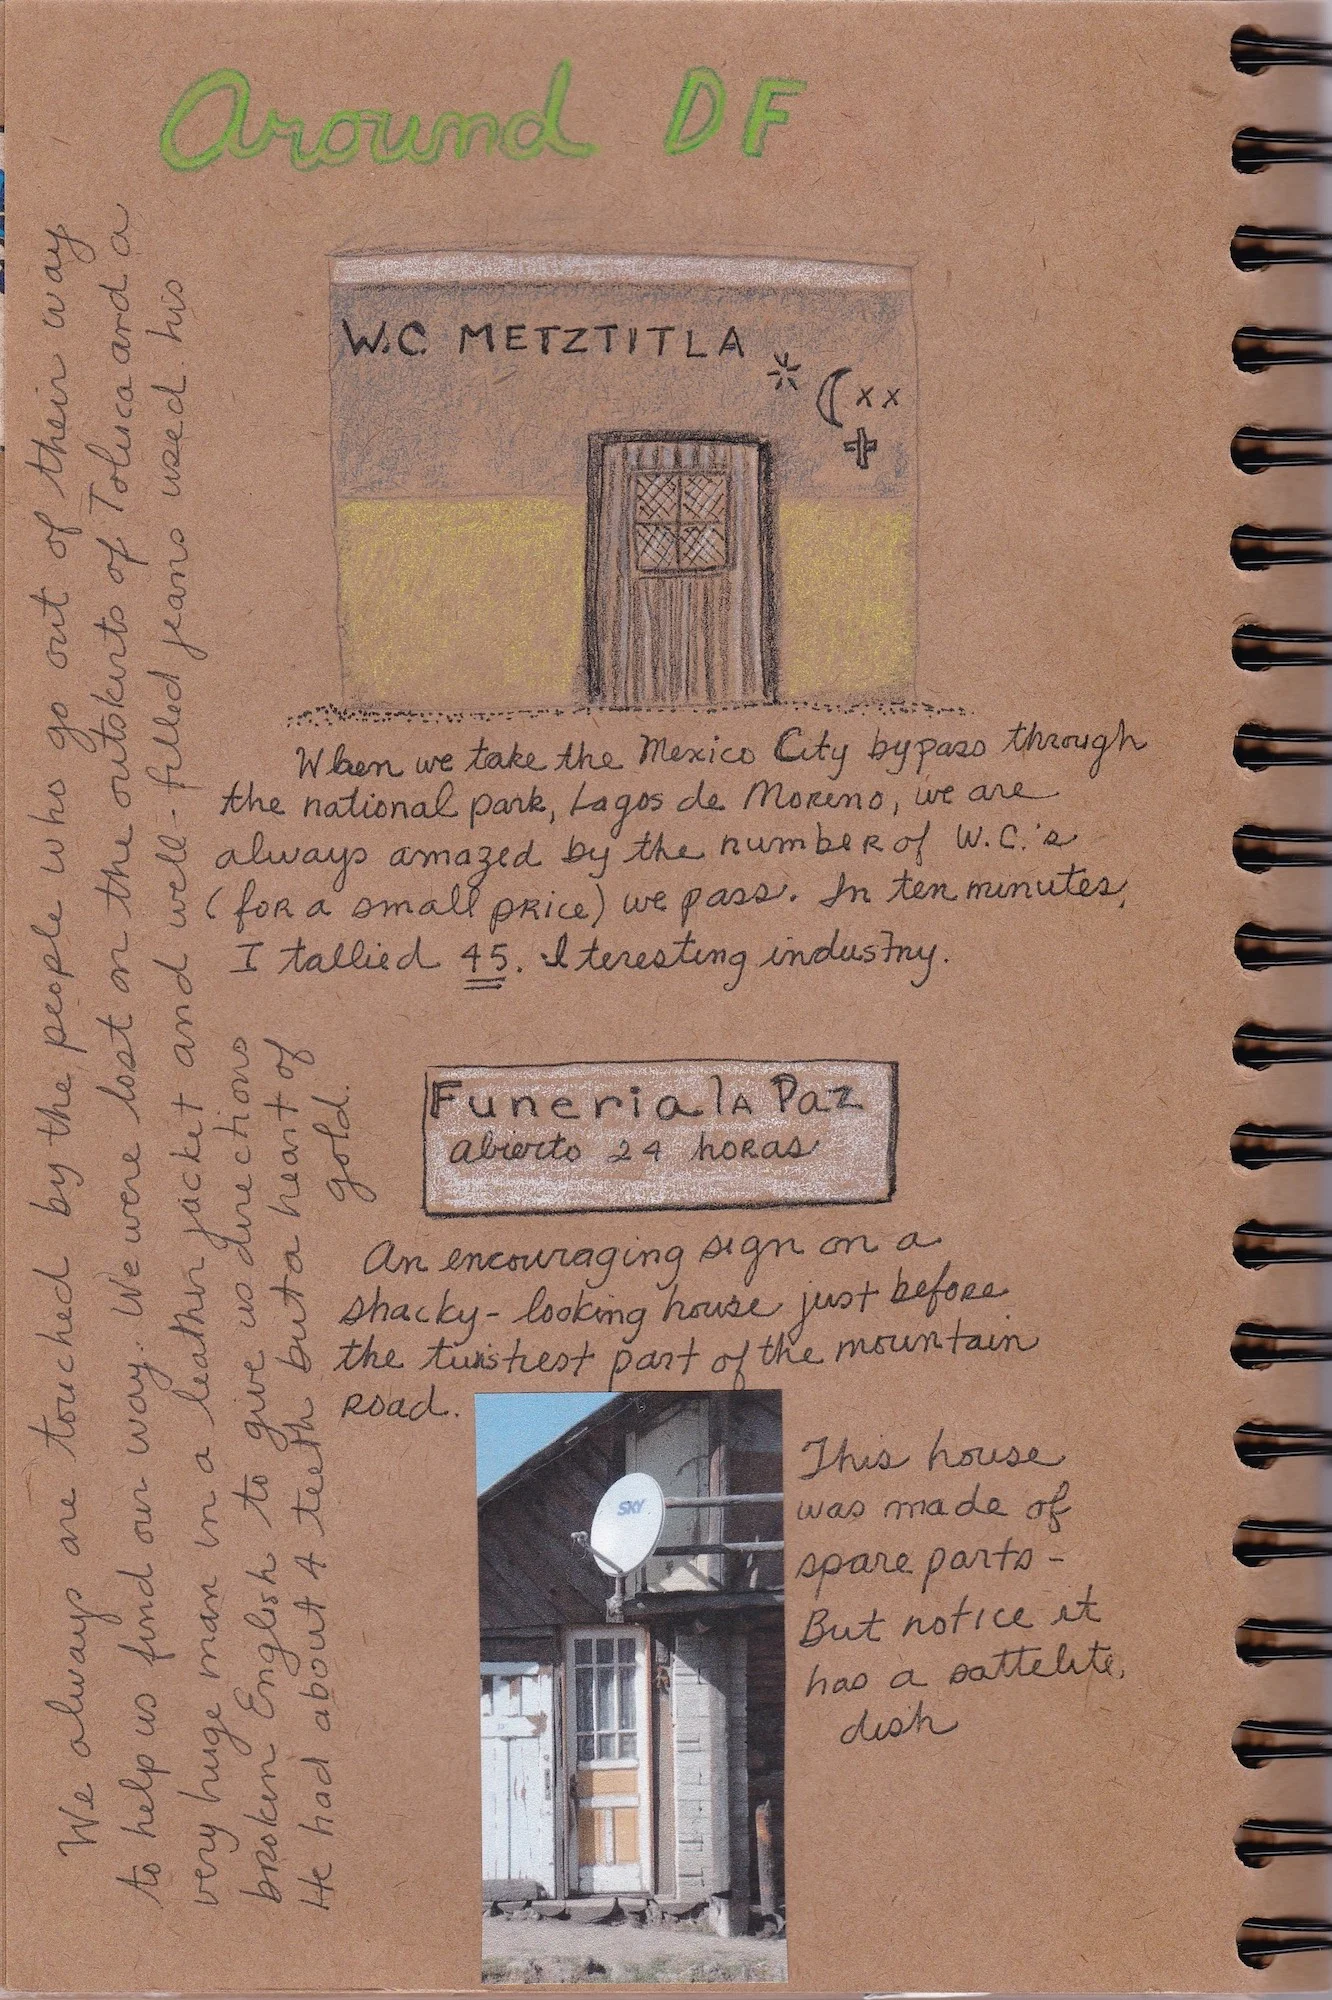 Around DF
W.C. METZTITLA
When we take the Mexico City bypass through
the national park, Lagos de Moreno, we are
always amazed by the number of W.C.'s
(for a small price) we pass. In ten minutes,
I tallied 45. Iteresting industry.
Funeria la Paz
abierto 24 horas
An encouraging sign on a
shacky-looking house just before
the twistiest part of the mountain
road.
SKY
This house
was made of
spare parts -
But notice it
has a sattelite
dish
We always are touched by the people who go out of their way
to help us find our way. We were lost on the outskirts of Toluca and a
very huge man in a leather jacket and well-filled jeans used his
broken English to give us directions
He had about 4 teeth but a heart of
gold.